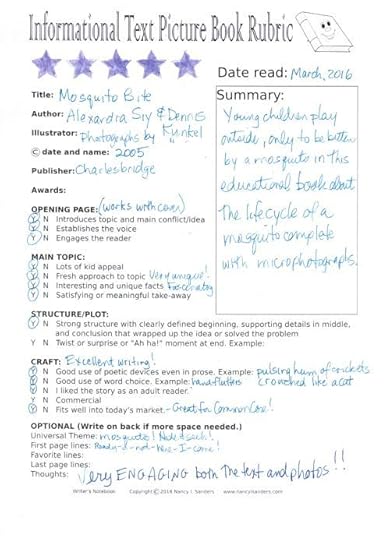 Informational Text Picture Book Rubric
Date read: March, 2016
Title: Mosquito Bite
Author: Alexandra Siy & Dennis Kunkel
Illustrator: photographs by " "
© date and name: 2005
Publisher: Charlesbridge
Awards:
Summary:
Young children play
outside, only to be bitten
by a mosquito in this
educational book about
the lifecycle of a
mosquito complete
with microphotographs.
OPENING PAGE: (works with cover)
Y N Introduces topic and main conflict/idea
Y N Establishes the voice
Y N Engages the reader
MAIN TOPIC:
Y N Lots of kid appeal
Y N Fresh approach to topic Very unique!
Y N Interesting and unique facts Fascinating
Y N Satisfying or meaningful take-away
STRUCTURE/PLOT:
Y N Strong structure with clearly defined beginning, supporting details in middle,
and conclusion that wrapped up the idea or solved the problem
Y N Twist or surprise or "Ah ha!" moment at end. Example:
CRAFT: Excellent writing!
Y N Good use of poetic devices even in prose. Example: pulsing hum of crickets
Y N Good use of word choice. Example: hand flutters crouched like a cat
Y N I liked the story as an adult reader.
Y N Commercial
Y N Fits well into today's market. - Great for Common Core!
OPTIONAL (Write on back if more space needed.)
Universal Theme: mosquitos! Hide & seek!
First page lines: Ready-I-not-here-I-come!
Favorite lines:
Last page lines:
Thoughts: Very ENGAGING both the text and photos!!
Writer's Notebook Copyright © 2014 Nancy I. Sanders www.nancyisanders.com